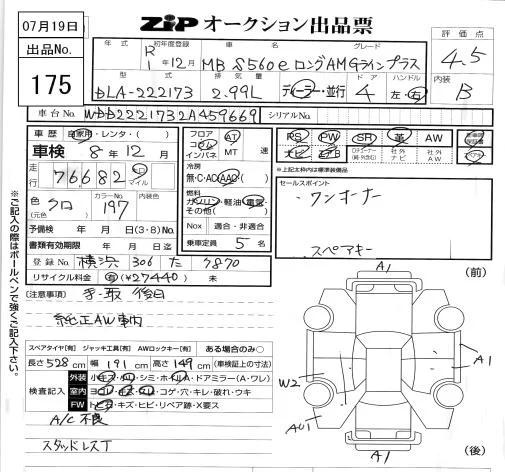 07月19日
出品No.
175
ZiP オークション出品票
評価点
4.5
内装
B
年式 初年度登録 車名 グレード
R1年12月 MB S560e ロングAMGラインプラス
型式 排気量 ドア ハンドル
DLA-222173 2.99L ディーラー・並行 4 左・右
車台No. WDD2221732A459669 シリアルNo.
車歴 自家用・レンタ・( )
車検 8年12月
走行 76682 キロ マイル
色(元色) クロ カラーNo. 197
予備検 年 月 日(3・8)No.
書類有効期限 年 月 日
登録No. 横浜 306 た 7870
リサイクル料金 有(¥27440) 未
フロア コラム インパネ AT MT 速
冷房 無・C・AC・AAC
燃料 ガソリン・軽油・電気・その他( )
Nox 適合・非適合
乗車定員 5名
PS PW SR 革 AW
ナビ エアB 社外ナビ 社外AW
※上記太枠内は標準装備品
セールスポイント
・ワンオーナー
スペアキー
(注意事項) 手・取 後日
純正AW車内
スペアタイヤ[有] ジャッキ工具[有] AWロックキー[有] ある場合のみ○
長さ528cm 幅191cm 高さ149cm (車検証上の寸法)
検査記入
外装 小キズ・小凹・シミ・ホイルA・ドアミラー(A・ワレ)
室内 ヨゴレ・キズ・スレ・コゲ・穴・キレ・破れ・ウキ
FW トビ石・キズ・ヒビ・リペア跡・X要ス
A/C不良
スタッドレスT
※ご記入の際はボールペンで強くご記入下さい。
(前)
A1
A1
W2
AU1
A1
(後)